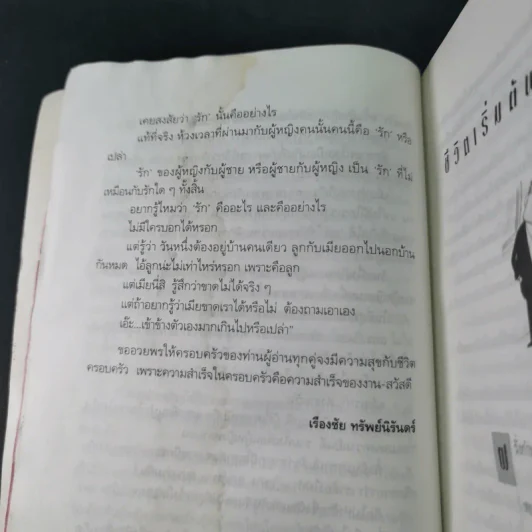 เคยสงสัยว่า 'รัก' นั้นคืออย่างไร
แท้ที่จริง ห้วงเวลาที่ผ่านมากับผู้หญิงคนนั้นคนนี้คือ 'รัก' หรือ
เปล่า
'รัก' ของผู้หญิงกับผู้ชาย หรือผู้ชายกับผู้หญิง เป็น 'รัก' ที่ไม่
เหมือนกับรักใด ๆ ทั้งสิ้น
อยากรู้ไหมว่า 'รัก' คืออะไร และคืออย่างไร
ไม่มีใครบอกได้หรอก
แต่รู้ว่า วันหนึ่งต้องอยู่บ้านคนเดียว ลูกกับเมียออกไปนอกบ้าน
กันหมด ไอ้ลูกน่ะไม่เท่าไหร่หรอก เพราะคือลูก
แต่เมียนี่สิ รู้สึกว่าขาดไม่ได้จริง ๆ
แต่ถ้าอยากรู้ว่าเมียขาดเราได้หรือไม่ ต้องถามเอาเอง
เอ๊ะ...เข้าข้างตัวเองมากเกินไปหรือเปล่า"
ขออวยพรให้ครอบครัวของท่านผู้อ่านทุกคู่จงมีความสุขกับชีวิต
ครอบครัว เพราะความสำเร็จในครอบครัวคือความสำเร็จของงาน-สวัสดี
เรืองชัย ทรัพย์นิรันดร์
ชีวิตเริ่มต้น